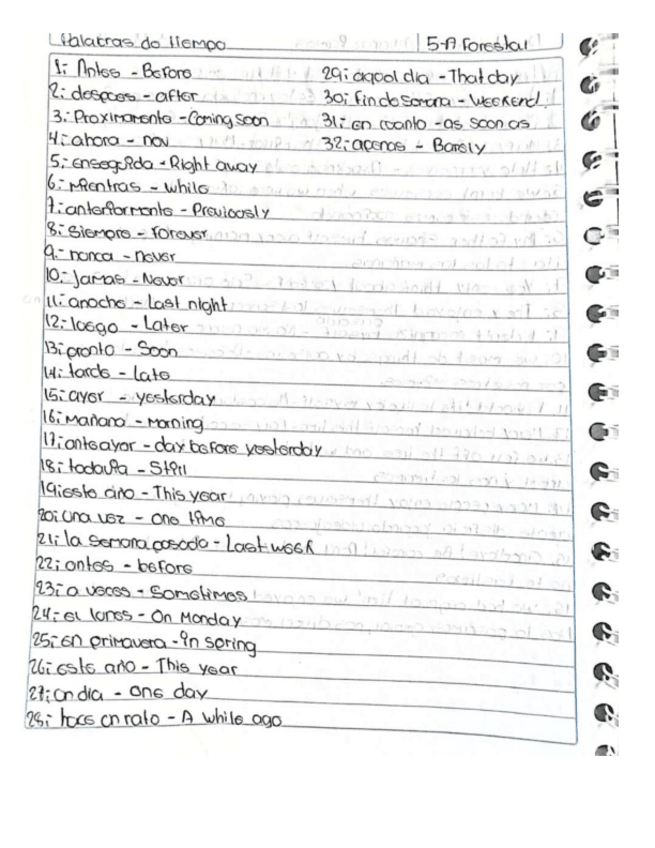 Palabras de tiempo 5-A Forestal
1: Antes - Before
2: despues - after
3: Proximamente - Coming soon
4: ahora - nov
5: enseguida - Right away
6: Mientras - while
7: anteriormente - Previously
8: Siempre - Forever
9: nunca - never
10: Jamas - Never
11: anoche - Last night
12: luego - Later
13: pronto - Soon
14: tarde - Late
15: ayer - yesterday
16: Mañana - Morning
17: anteayer - day before yesterday
18: todavia - Still
19: este año - This year
20: Una vez - One time
21: la semana pasada - Last week
22: antes - before
23: a veces - Sometimes
24: el lunes - On Monday
25: en primavera - in spring
26: este año - This year
27: un dia - One day
28: hace un rato - A while ago
29: aquel dia - That day
30: fin de semana - Weekend
31: en cuanto - as soon as
32: apenas - Barely